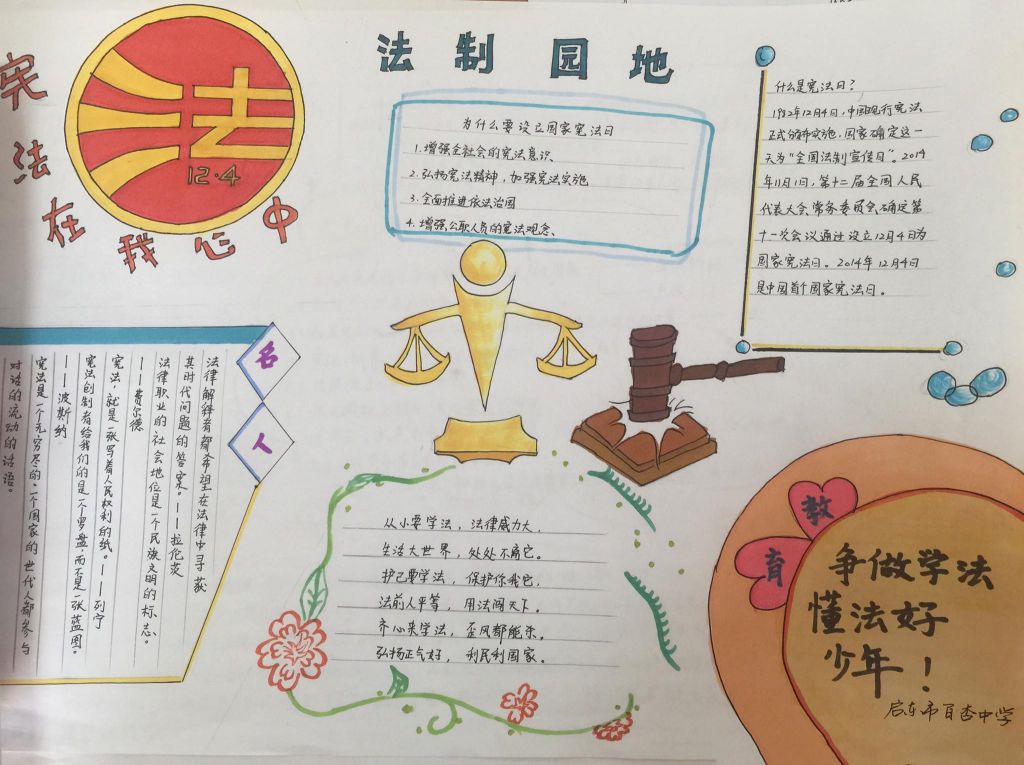 宪法在我心中
法
12·4
法制园地
为什么要设立国家宪法日
1.增强全社会的宪法意识、
2.弘扬宪法精神，加强宪法实施
3.全面推进依法治国
4.增强公职人员的宪法观念、
什么是宪法日？
1982年12月4日，中国现行宪法
正式颁布实施，国家确定这一
天为“全国法制宣传日”。2014
年11月1日，第十二届全国人民
代表大会常务委员会确定第
十一次会议通过设立12月4日为
国家宪法日。2014年12月4日
是中国首个国家宪法日。
名人
法律解释者都希望在法律中寻获
其时代问题的答案。——拉伦茨
法律职业的社会地位是一个民族文明的标志。
——费尔德
宪法，就是一张写着人民权利的纸。——列宁
宪法创制者给我们的是一个罗盘，而不是一张蓝图。
——波斯纳
宪法是一个无穷尽的、一个国家的世代人都参与
对话的流动的话语。
从小要学法，法律威力大，
生活大世界，处处不离它。
护己要学法，保护你我它，
法前人平等，用法闯天下。
齐心来学法，歪风都能杀。
弘扬正气好，利民利国家。
教育
争做学法
懂法好
少年！
启东市百杏中学